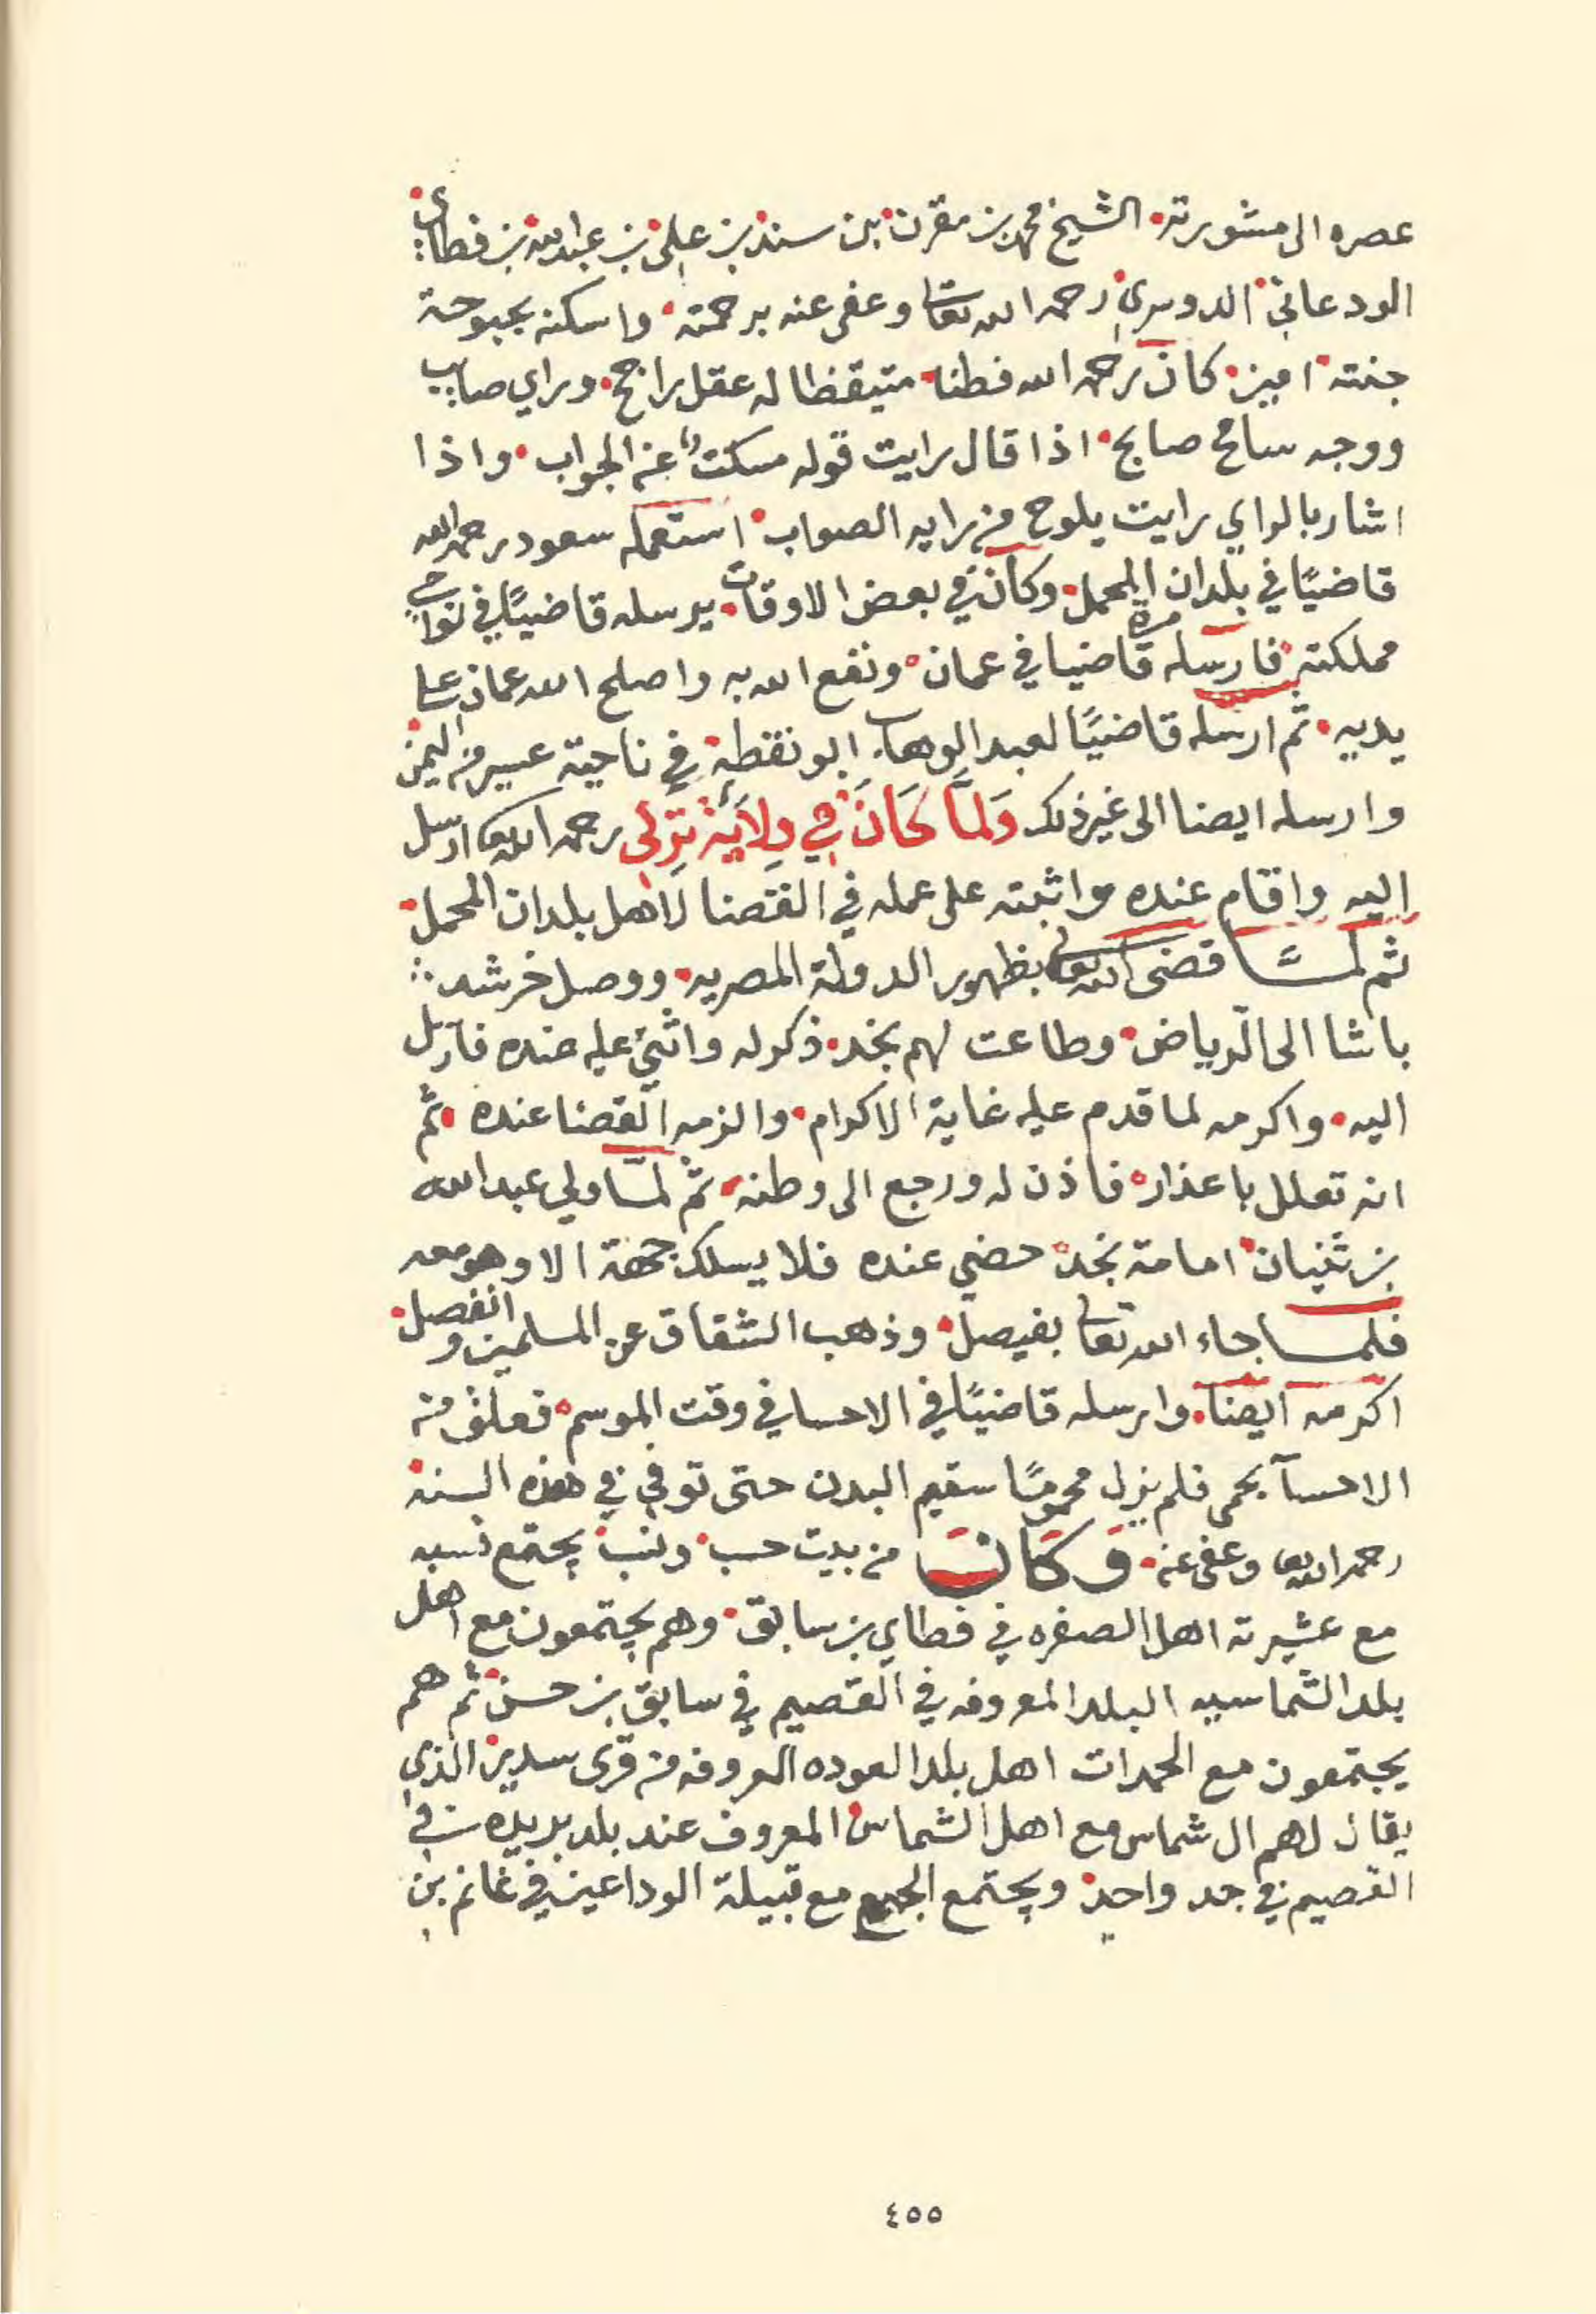 عصره الى مشورته الشيخ محمد بن مقرن بن سند بن علي بن عبدالله بن فطاي
الودعاني الدوسري رحمه الله تعالى وعفى عنه برحمته واسكنه بحبوحة
جنته امين كان رحمه الله فطنا متيقظا له عقل راجح وراي صايب
ووجه سامح صابح اذا قال رايت قوله مسكتا عن الجواب واذا
اشار بالراي رايت يلوح من رايه الصواب استعمله سعود رحمه الله
قاضيًا في بلدان المحمل وكان في بعض الاوقات يرسله قاضيًا في نواحي
مملكته فارسله مرة قاضيا في عمان ونفع الله به واصلح الله عمان على
يديه ثم ارسله قاضيًا لعبد الوهاب ابو نقطة في ناحية عسير من اليمن
وارسله ايضا الى غير ذلك وَلمَّا كَانَ في وِلاَيَة تركي رحمه الله تعالى ارسل
اليه واقام عنده واثبته على عمله في القضا لاهل بلدان المحمل
ثم لمَّا قضى الله تعالى بظهور الدولة المصريه ووصل خرشد
باشا الى الرياض وطاعت لهم نجد ذكر له واثني عليه عنده فارسل
اليه واكرمه لما قدم عليه غاية الاكرام والزمه القضا عنده ثم
انه تعلل باعذار فاذن له ورجع الى وطنه ثم لمّا ولي عبدالله
بن ثنيان امامة نجد حضي عنده فلا يسلك جهة الا وهو معه
فلما جاء الله تعالى بفيصل وذهب الشقاق عن المسلمين وانفصل
اكرمه ايضا وارسله قاضيًا في الاحسا في وقت الموسم فعلق من
الاحسآ بحمى فلم يزل محمومًا سقيم البدن حتى توفي في هذه السنة
رحمه الله تعالى وعفى عنه وكانَ من بيت حسب ونسب يجتمع نسبه
مع عشيرته اهل الصفره في فطاي بن سابق وهم يجتمعون مع اهل
بلد الشماسيه البلد المعروفه في القصيم في سابق بن حسن ثم هم
يجتمعون مع الحمدات اهل بلد العوده المعروفه من قرى سدير الذي
يقال لهم ال شماس مع اهل الشماس المعروف عند بلد بريده في
القصيم في جد واحد ويجتمع الجميع مع قبيلة الوداعين في غانم بن
٤٥٥